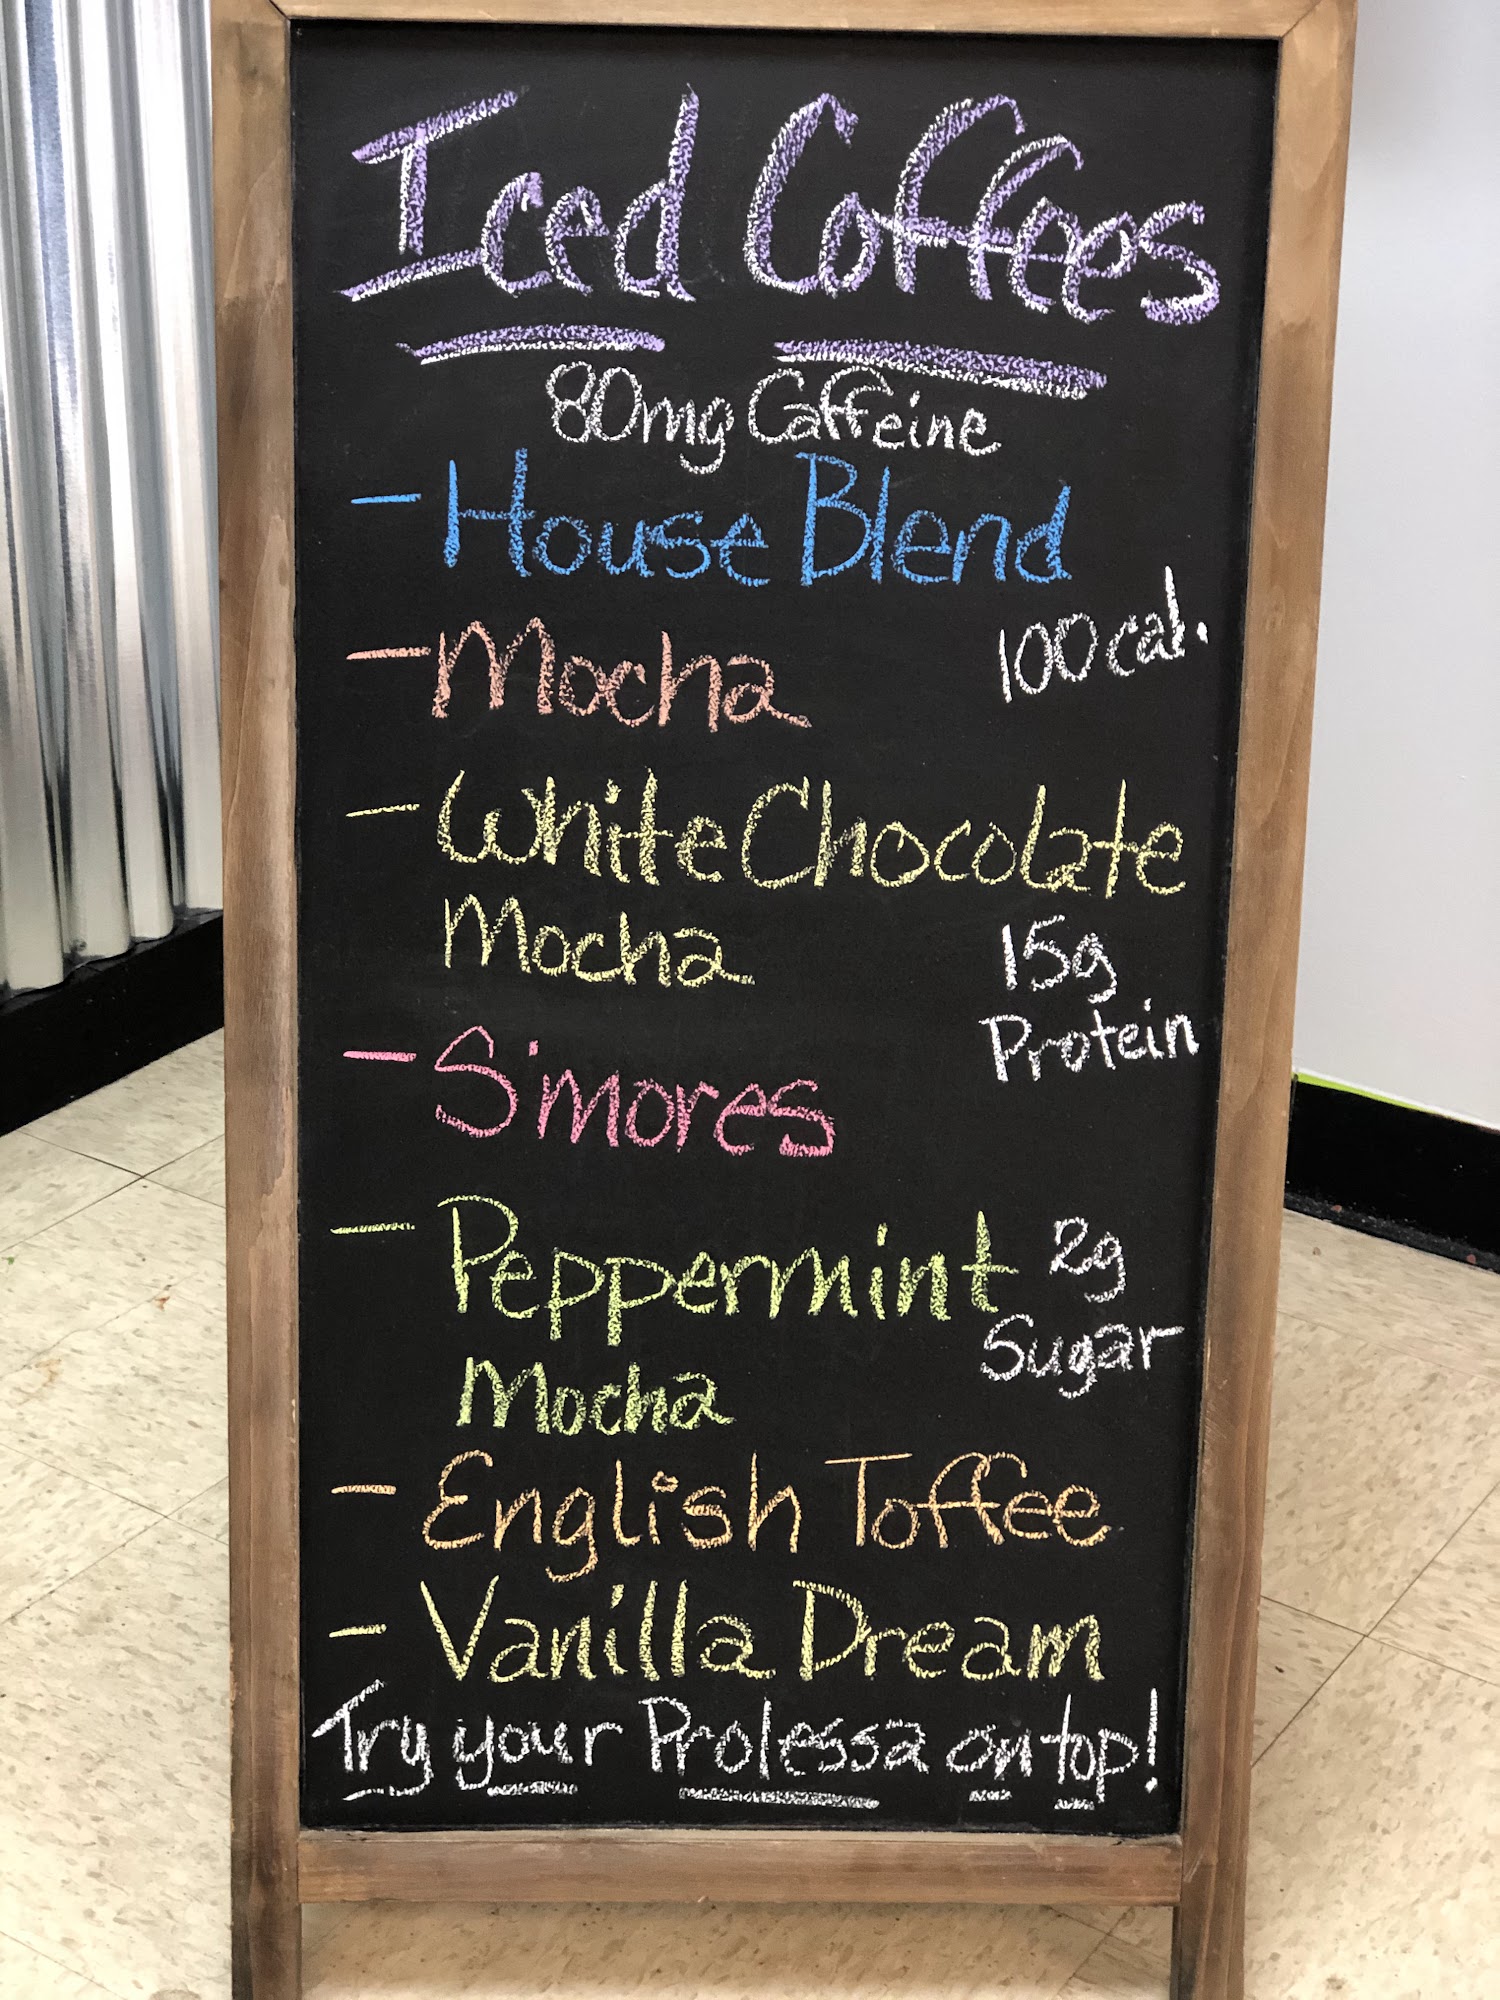 Iced Coffees
80mg Caffeine
- House Blend
100 cal.
- Mocha
- White Chocolate
Mocha
15g
Protein
- S'mores
- Peppermint
2g
Sugar
Mocha
- English Toffee
- Vanilla Dream
Try your Prolessa on top!